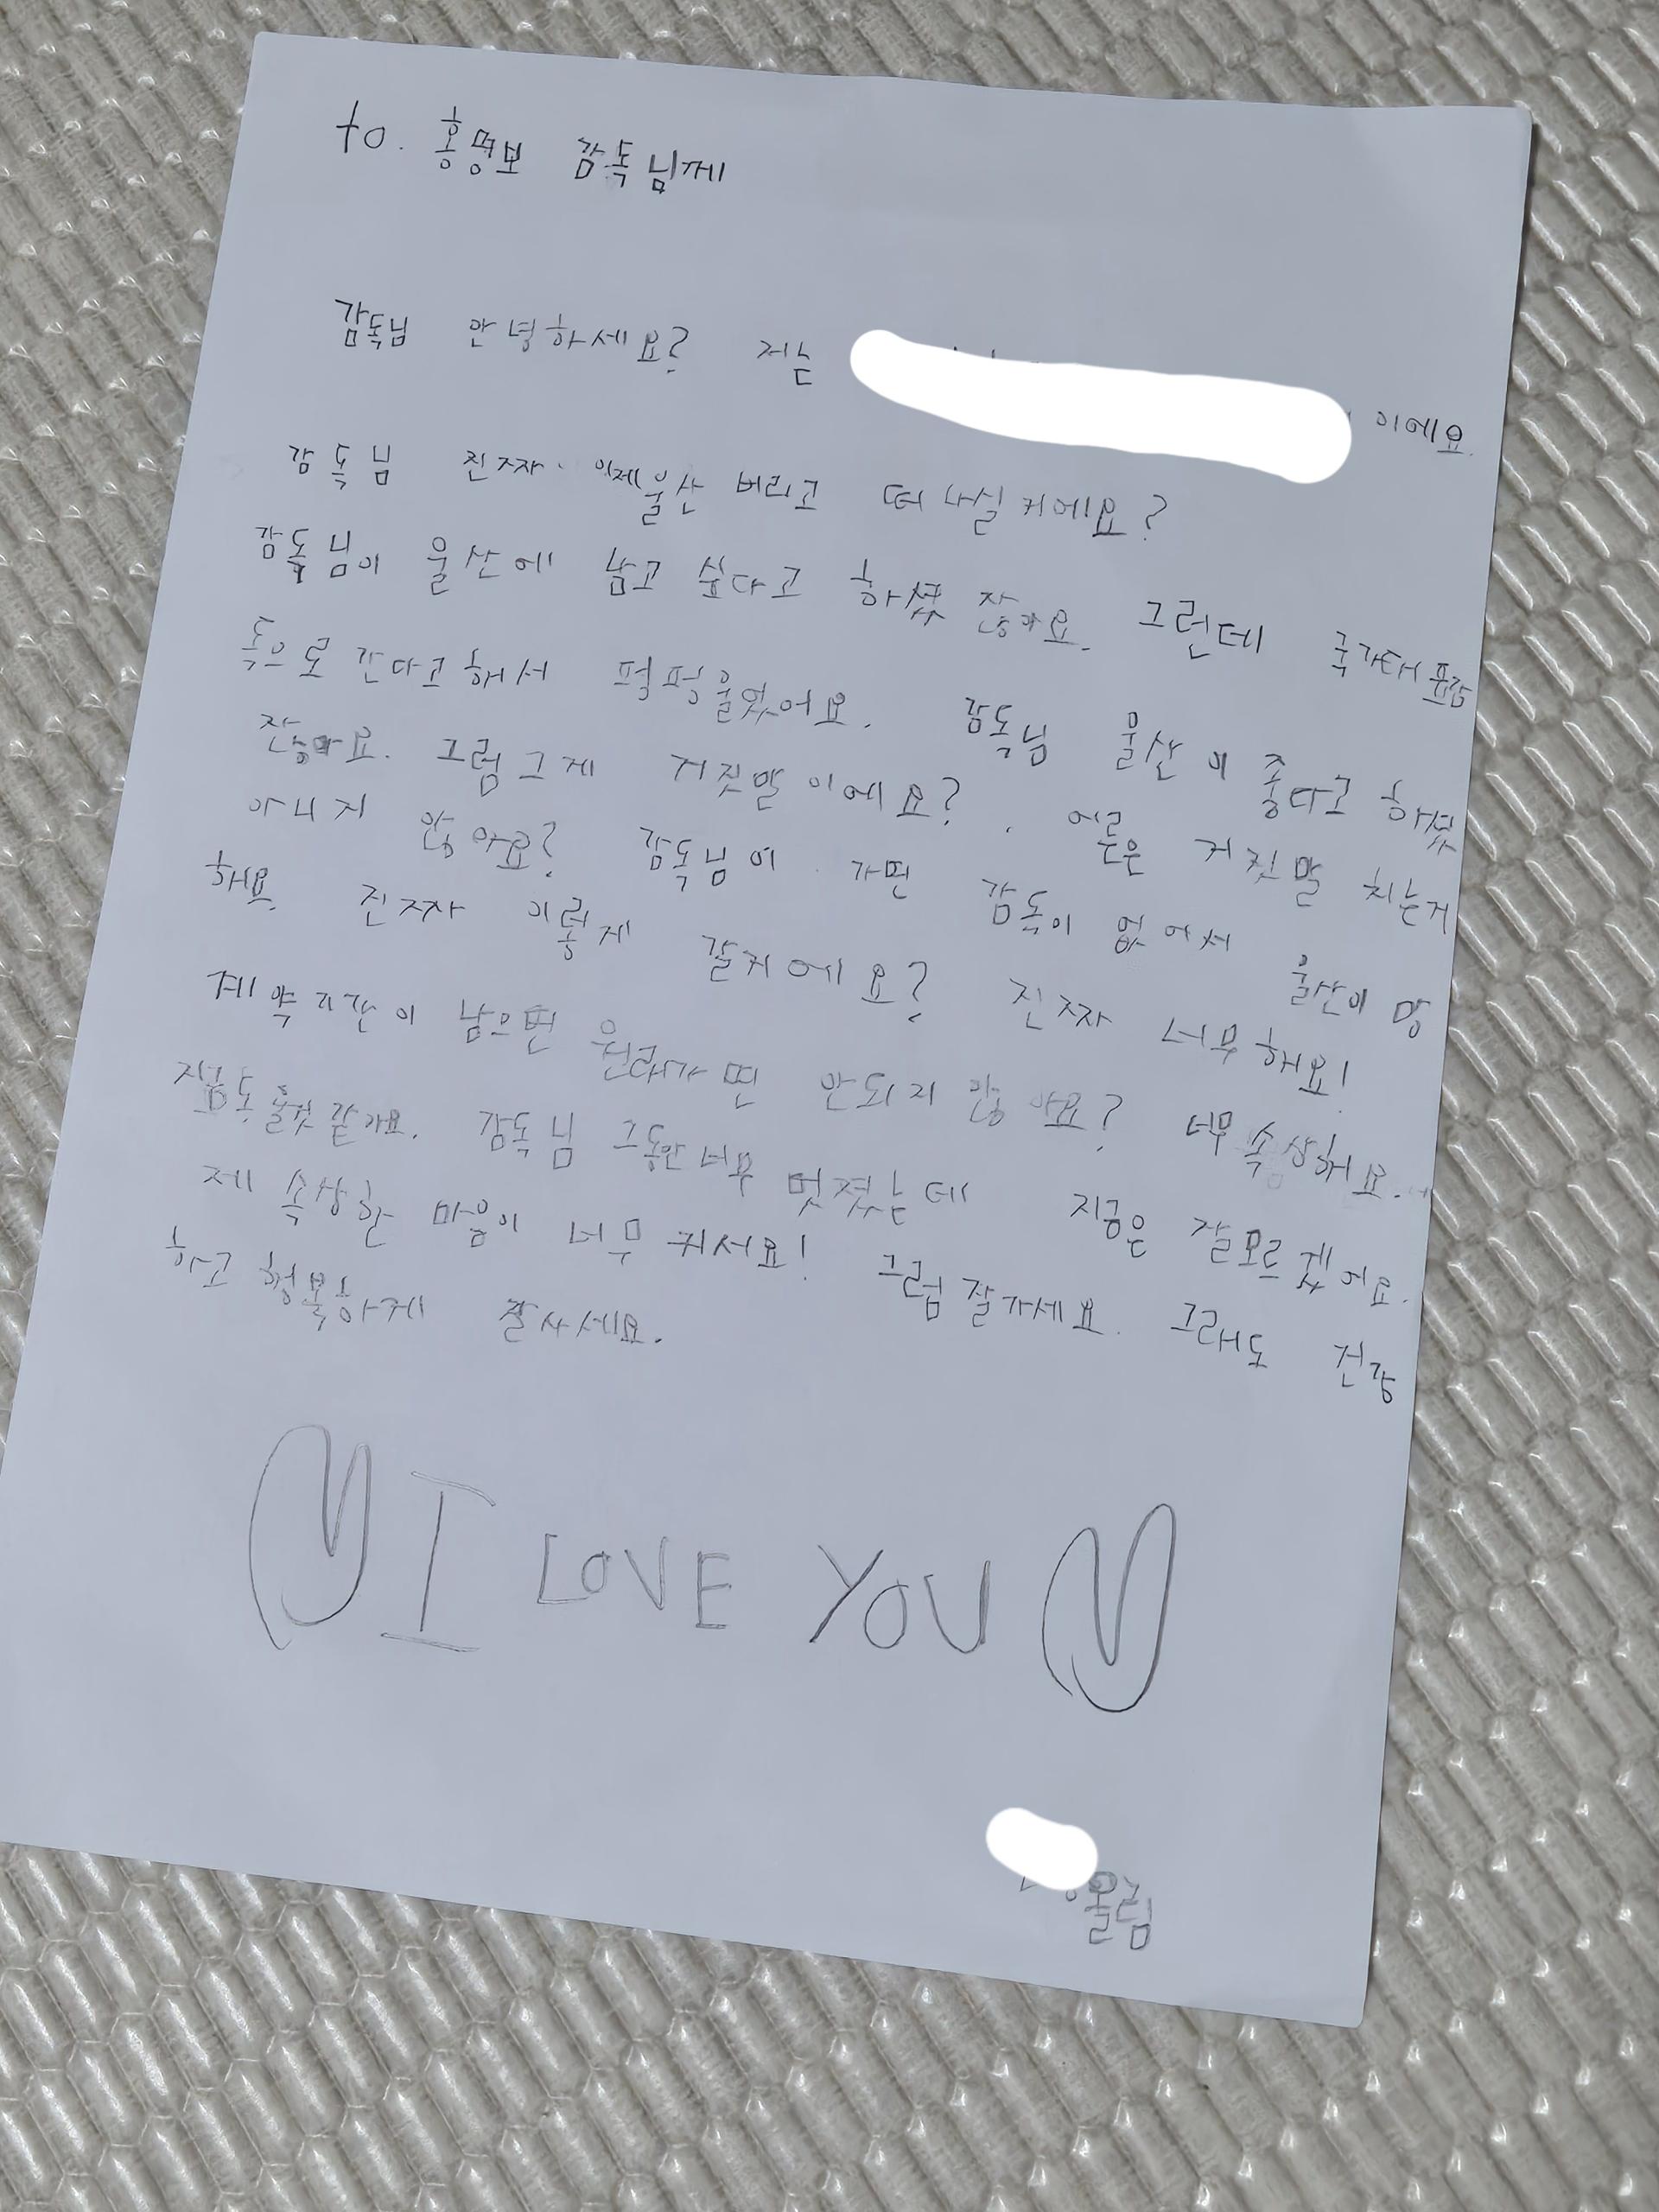 to. 홍명보 감독님께
감독님 안녕하세요? 저는 이에요.
감독님 진짜 이제 울산 버리고 떠나실 거에요?
감독님이 울산에 남고 싶다고 하셨잖아요. 그런데 국가대표감
독으로 간다고해서 펑펑울었어요. 감독님 울산이 좋다고 하셨
잖아요. 그럼그게 거짓말이에요? 어른은 거짓말 치는거
아니지 않아요? 감독님이 가면 감독이 없어서 울산이 망
해요. 진짜 이렇게 갈거에요? 진짜 너무해요!
계약기간이 남으면 원래가면 안되지 않아요? 너무속상해요.
지금도 울것같아요. 감독님 그동안너무 멋졌는데 지금은 잘모르겠어요.
제 속상한 마음이 너무 커서요! 그럼잘가세요. 그래도 건강
하고 행복하게 잘사세요.
I LOVE YOU
올림